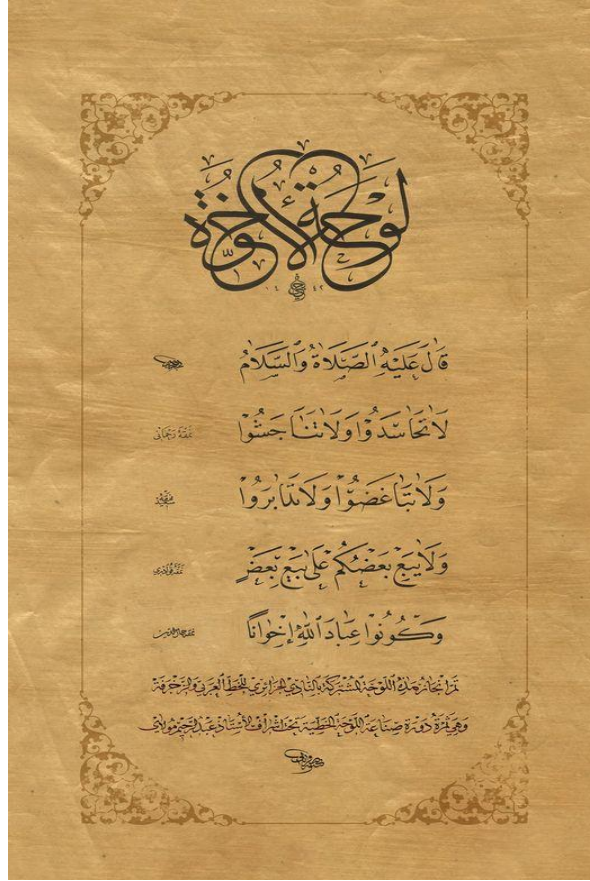 لَوْحَةُ الْأُخُوَّة
١٤٤٢
قَالَ عَلَيْهِ الصَّلَاةُ وَالسَّلَامُ
لَا تَحَاسَدُوْا وَلَا تَنَاجَشُوْا
وَلَا تَبَاغَضُوْا وَلَا تَدَابَرُوْا
وَلَا يَبِعْ بَعْضُكُمْ عَلَى بَيْعِ بَعْضٍ
وَكُونُوْا عِبَادَ اللّٰهِ إِخْوَانًا
تم إنجاز هذه اللوحة المشتركة بالنادي الجزائري للخط العربي والزخرفة
وهي ثمرة دورة صناعة اللوحة الخطية تحت إشراف الأستاذ عبد الرحيم مولاي